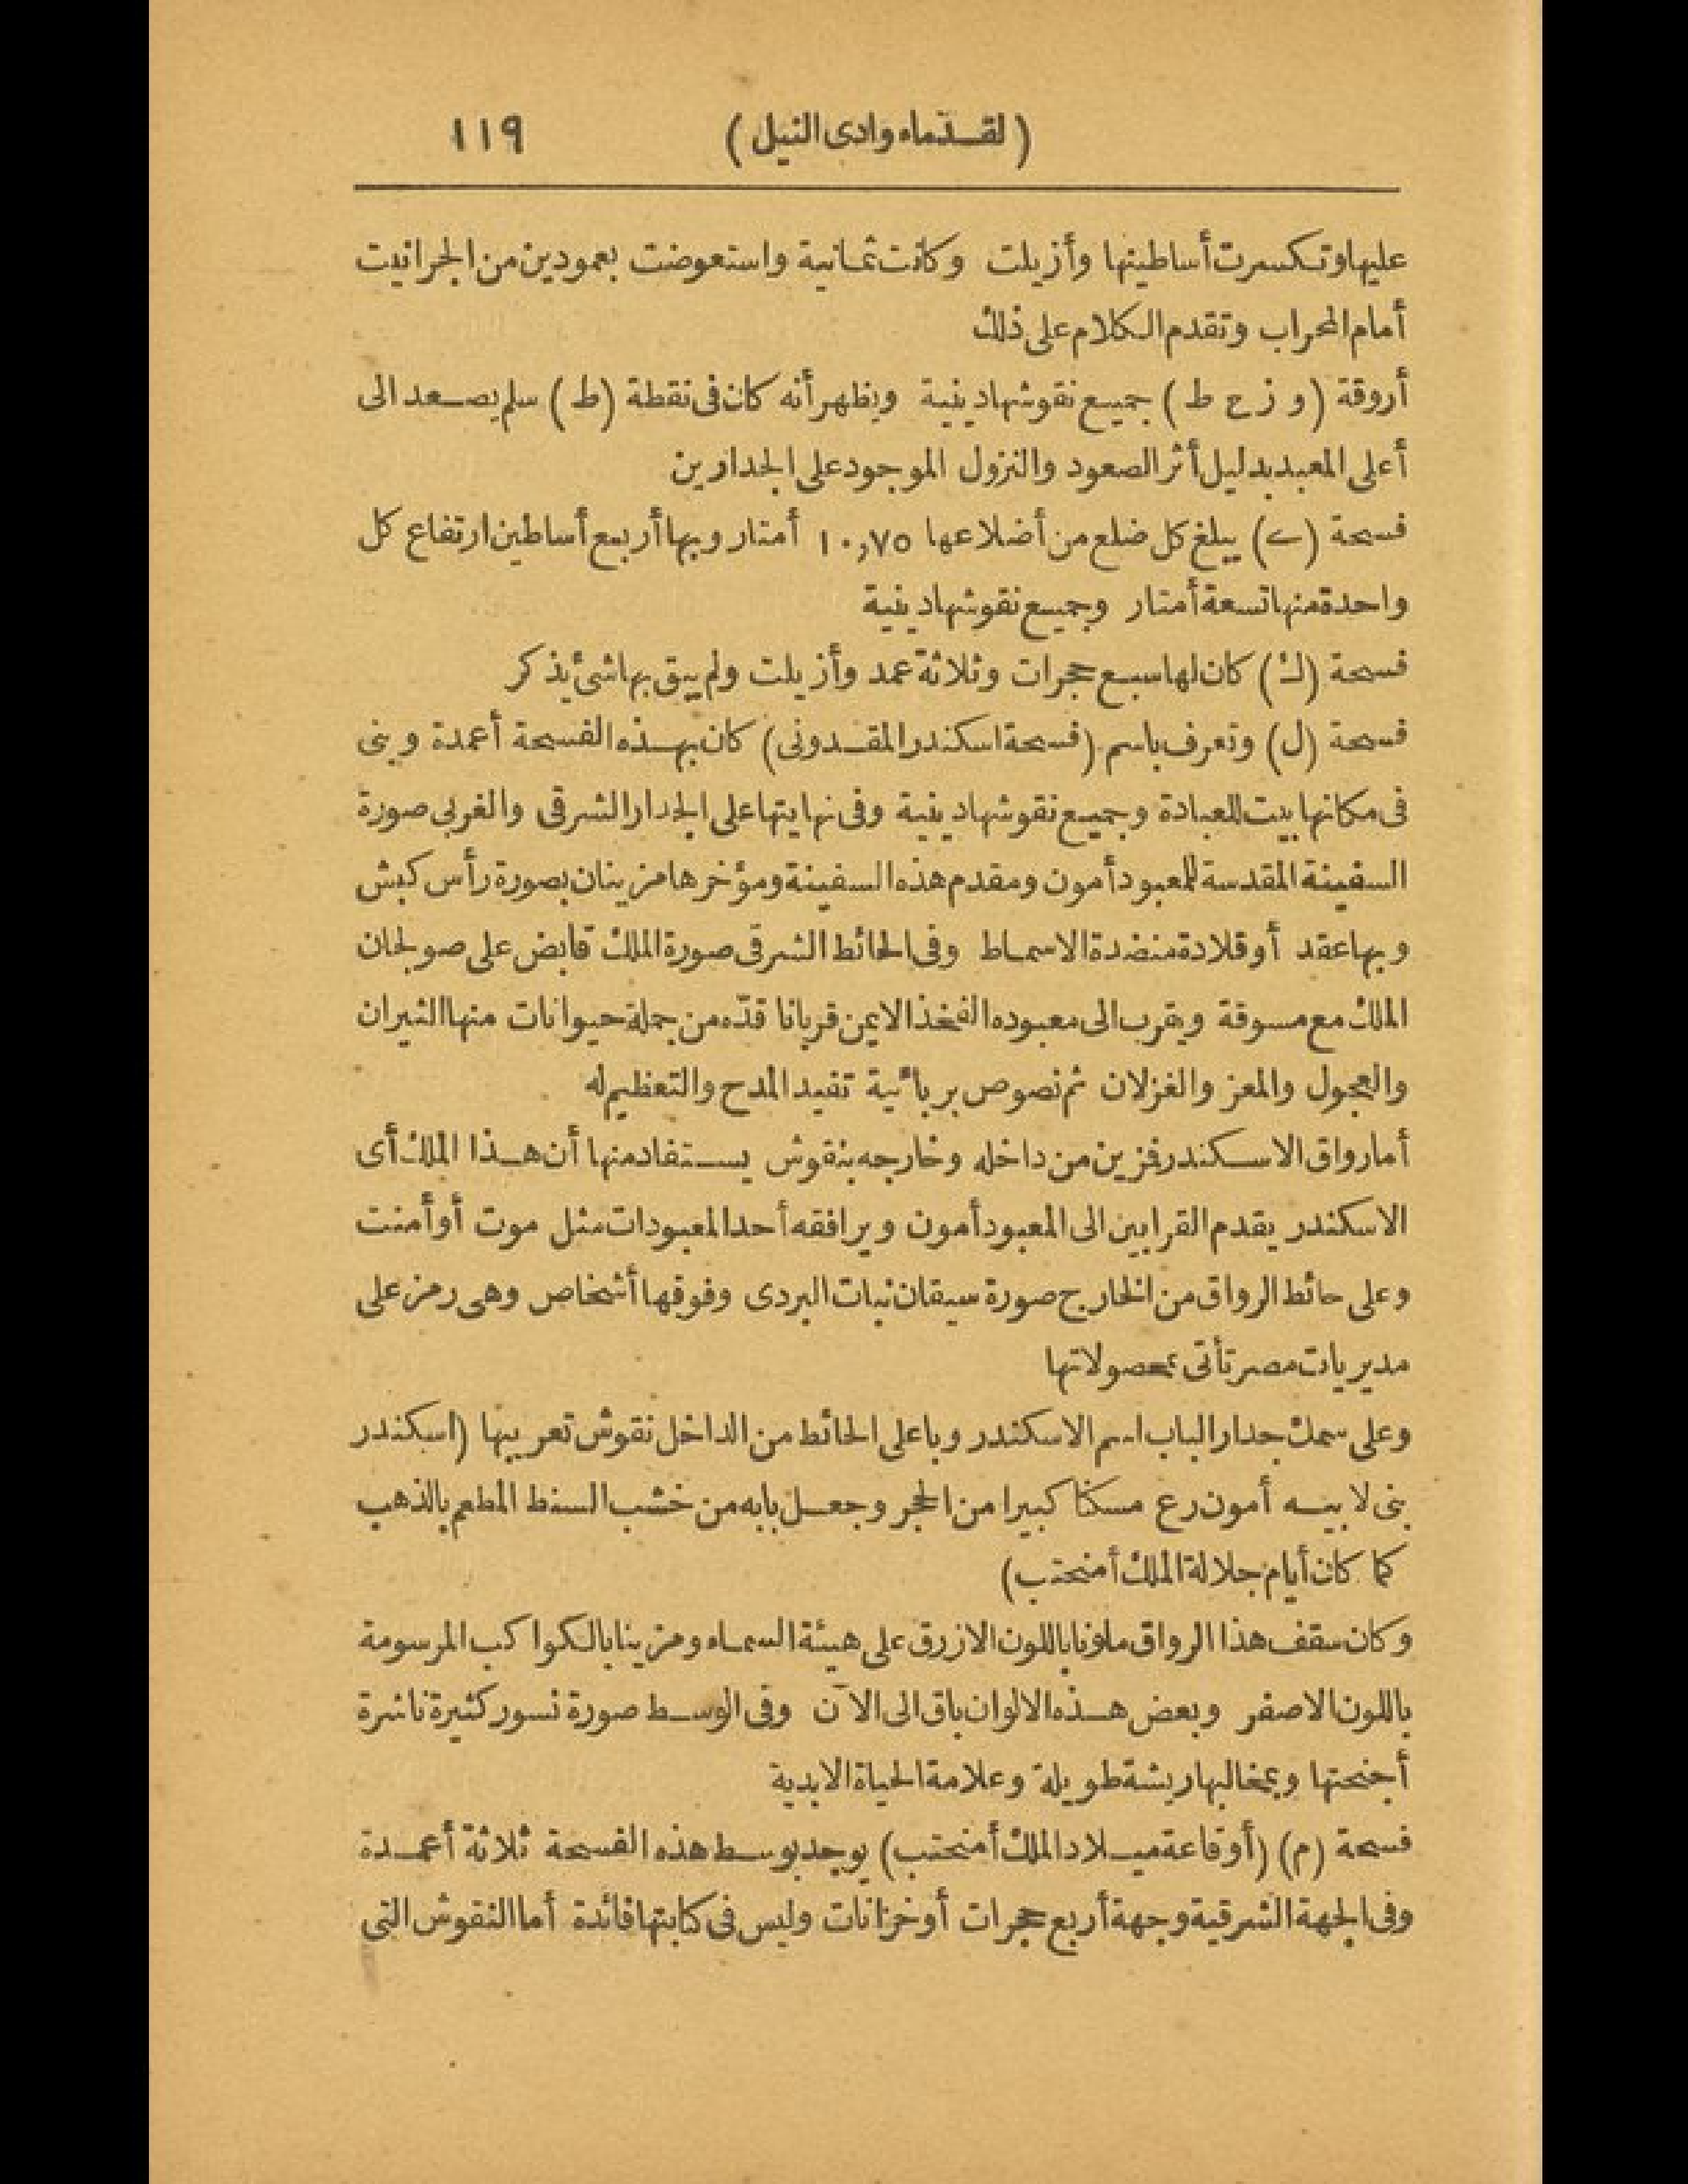 (لقدّماء وادى النيل) ١١٩
عليها وتكسرت أساطينها وأزيلت وكانت ثمانية واستعوضت بعمودين من الجرانيت
أمام المحراب وتقدم الكلام على ذلك
أروقة (و ز ح ط) جميع نقوشها دينية ويظهر أنه كان فى نقطة (ط) سلم يصعد الى
أعلى المعبد بدليل أثر الصعود والنزول الموجود على الجدارين
فسحة (ى) يبلغ كل ضلع من أضلاعها ١٠,٧٥ أمتار وبها أربع أساطين ارتفاع كل
واحدة منها تسعة أمتار وجميع نقوشها دينية
فسحة (ك) كان لها سبع حجرات وثلاثة عمد وأزيلت ولم يبق بها شئ يذكر
فسحة (ل) وتعرف باسم (فسحة اسكندر المقدونى) كان بهذه الفسحة أعمدة وبنى
فى مكانها بيت للعبادة وجميع نقوشها دينية وفى نهايتها على الجدار الشرقى والغربى صورة
السفينة المقدسة للمعبود أمون ومقدم هذه السفينة ومؤخرها مزينان بصورة رأس كبش
وبها عقد أو قلادة منضدة الاسماط وفى الحائط الشرقى صورة الملك قابض على صولجان
الملك مع مسوقة ويقرب الى معبوده الفخذ الايمن قربانا قدّه من جملة حيوانات منها الثيران
والعجول والمعز والغزلان ثم نصوص بربائية تفيد المدح والتعظيم له
أما رواق الاسكندر فزين من داخله وخارجه بنقوش يستفاد منها أن هذا الملك أى
الاسكندر يقدم القرابين الى المعبود أمون ويرافقه أحد المعبودات مثل موت أو أمنت
وعلى حائط الرواق من الخارج صورة سيقان نبات البردى وفوقها أشخاص وهى رمز على
مديريات مصر تأتى بمحصولاتها
وعلى سمك جدار الباب اسم الاسكندر وباعلى الحائط من الداخل نقوش تعريبها (اسكندر
بنى لابيه أمون رع مسكنا كبيرا من الحجر وجعل بابه من خشب السنط المطعم بالذهب
كما كان أيام جلالة الملك أمنحتب)
وكان سقف هذا الرواق ملونا باللون الازرق على هيئة السماء ومزينا بالكواكب المرسومة
باللون الاصفر وبعض هذه الالوان باق الى الآن وفى الوسط صورة نسور كثيرة ناشرة
أجنحتها وبمخالبها ريشة طويلة وعلامة الحياة الابدية
فسحة (م) (أو قاعة ميلاد الملك أمنحتب) يوجد بوسط هذه الفسحة ثلاثة أعمدة
وفى الجهة الشرقية وجهة أربع حجرات أو خزانات وليس فى كتابتها فائدة أما النقوش التى